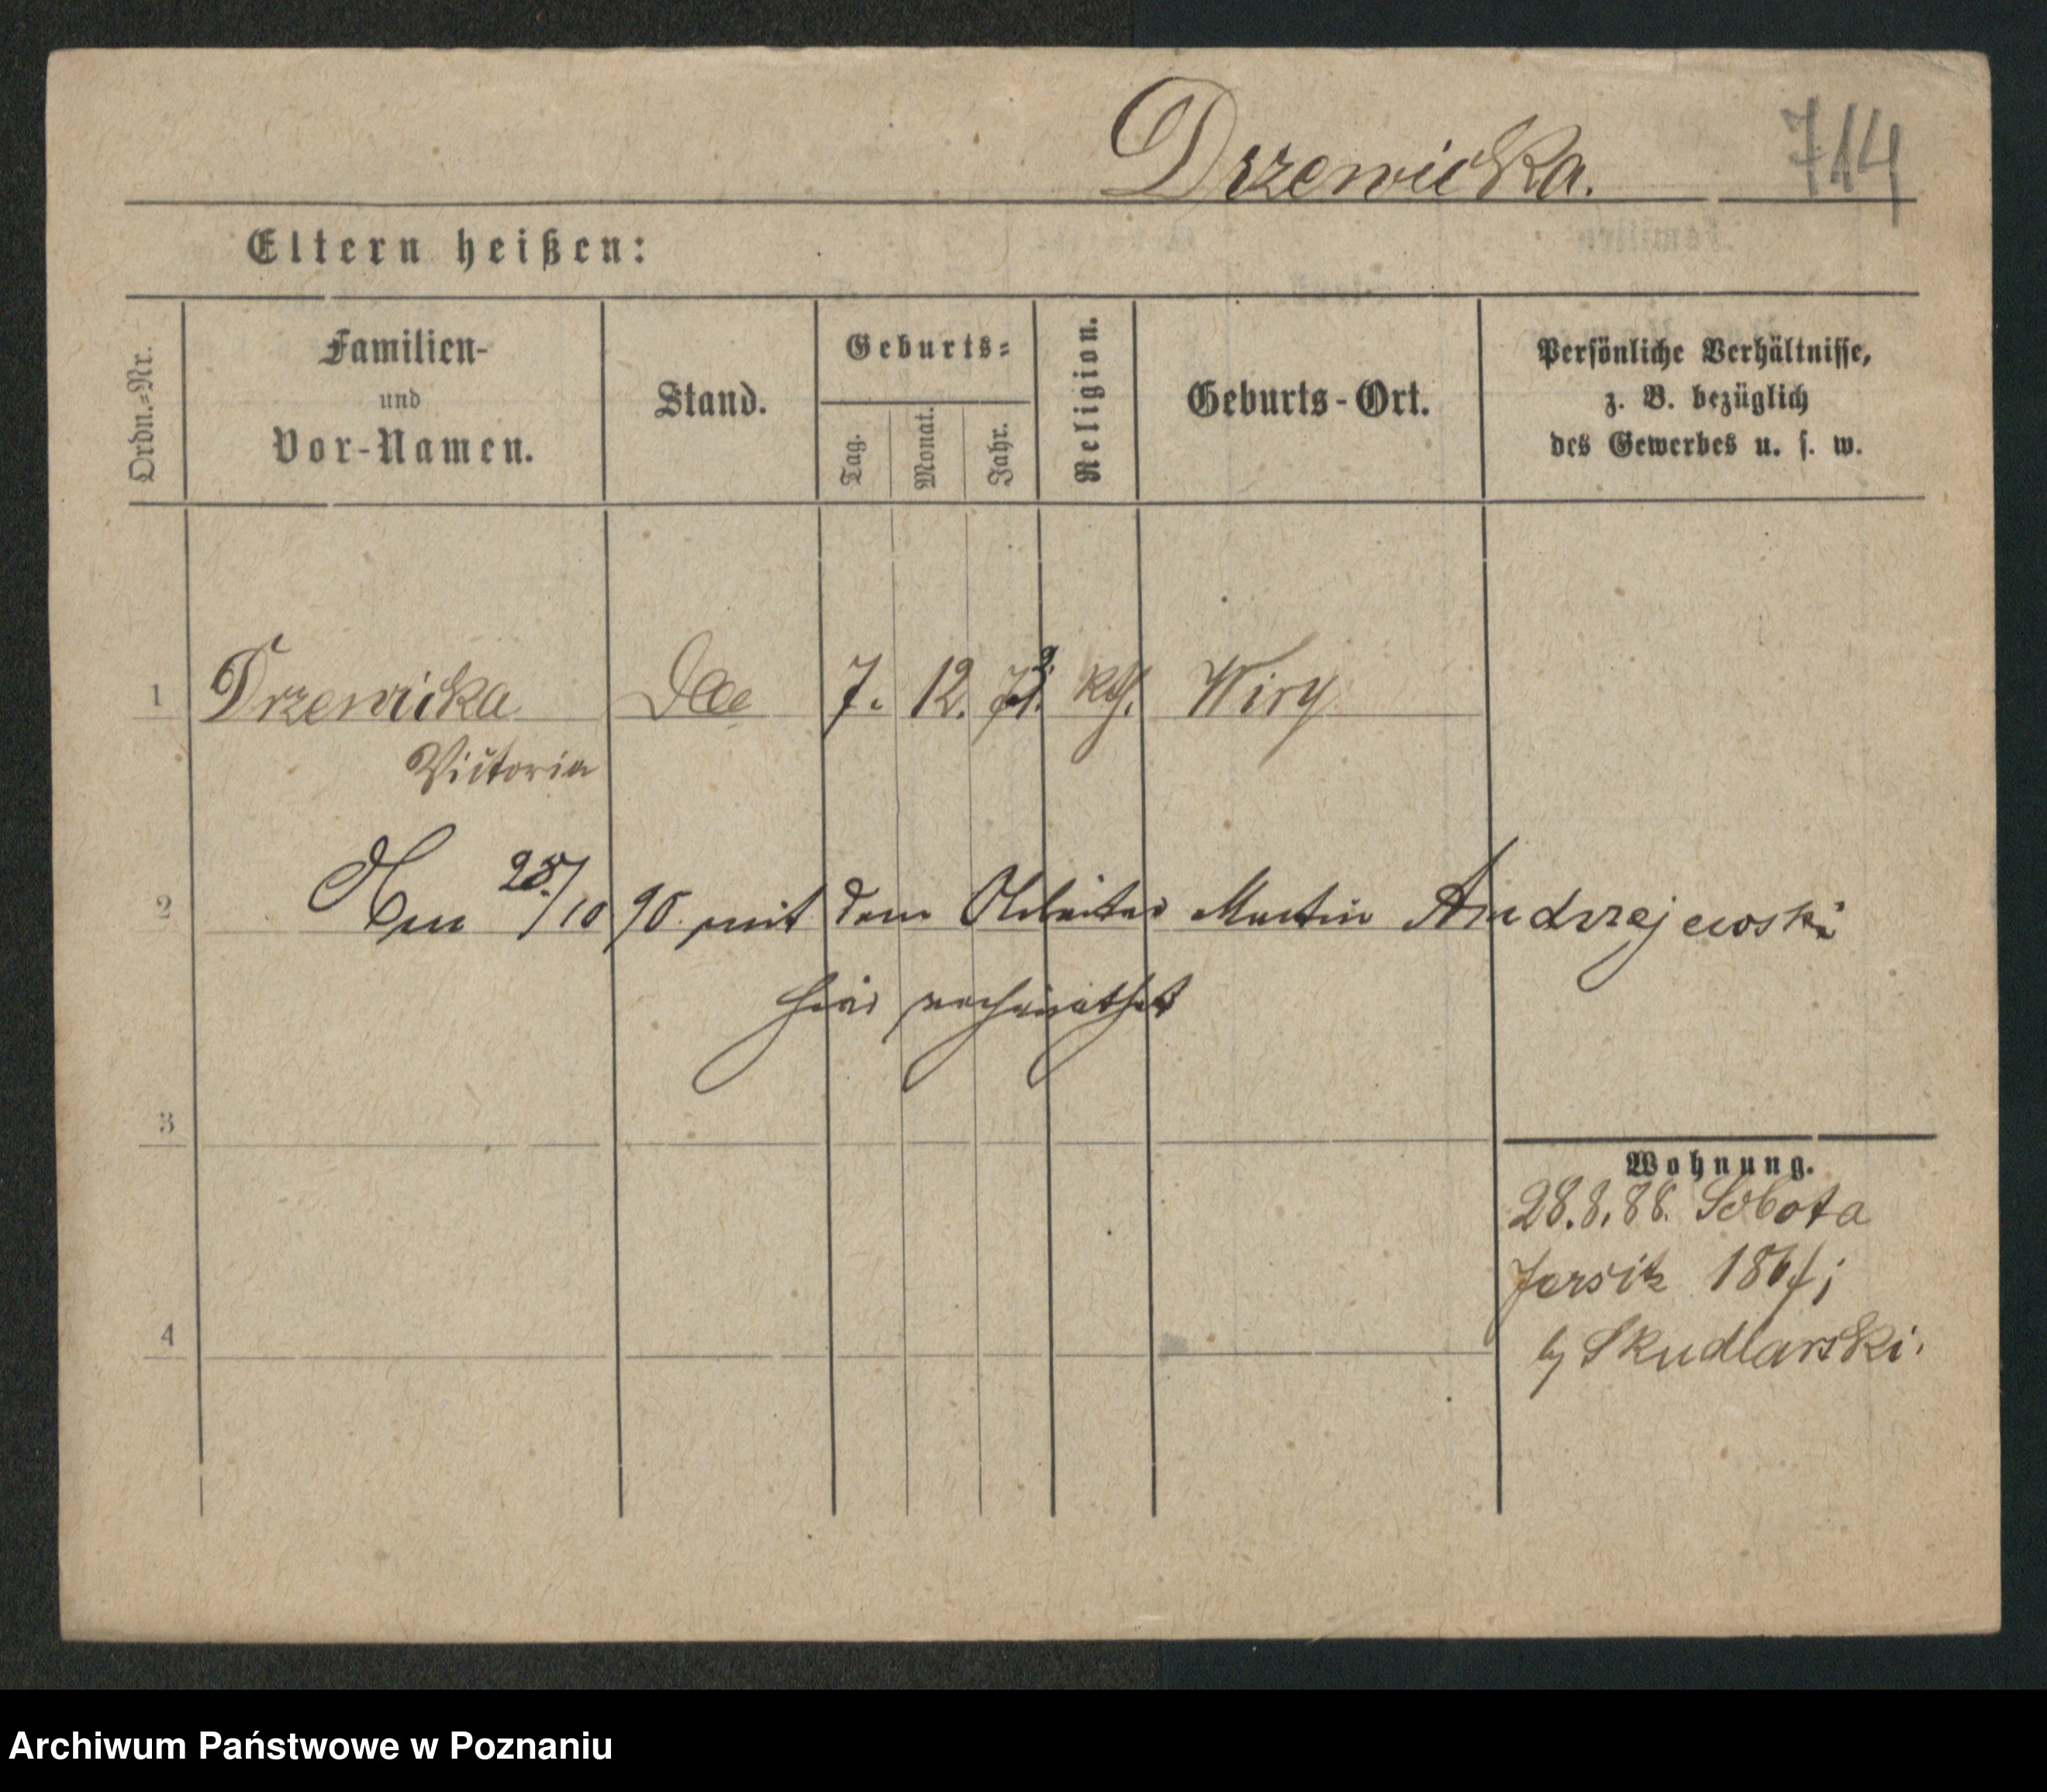 Drzewicka. 714
Eltern heißen:
Ordn.-Nr.
Familien-
und
Vor-Namen.
Stand.
Geburts-
Tag.
Monat.
Jahr.
Religion.
Geburts-Ort.
Persönliche Verhältnisse,
z. B. bezüglich
des Gewerbes u. s. w.
1 Drzewicka 7. 12. kth. Wiry
Victoria
2 Den 28./10 90. mit dem Arbeiter Martin Andrzejewski
hier verheirathet
3
Wohnung.
28.8.88. Sobota
Jersitz
4
b/ Skudlarski.
Archiwum Państwowe w Poznaniu